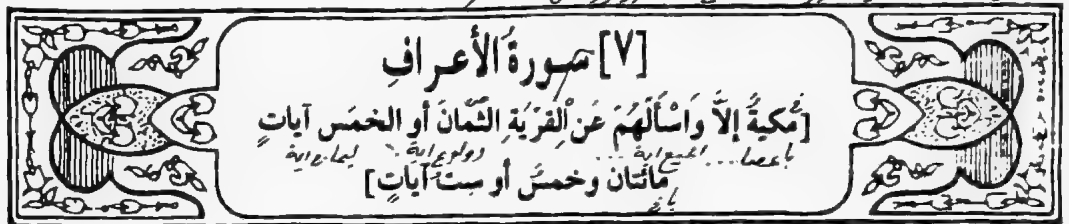 [٧] سورة الأعراف
[مكية إلا واسألهم عن القرية الثمان أو الخمس آيات
مائتان وخمس أو ست آيات]